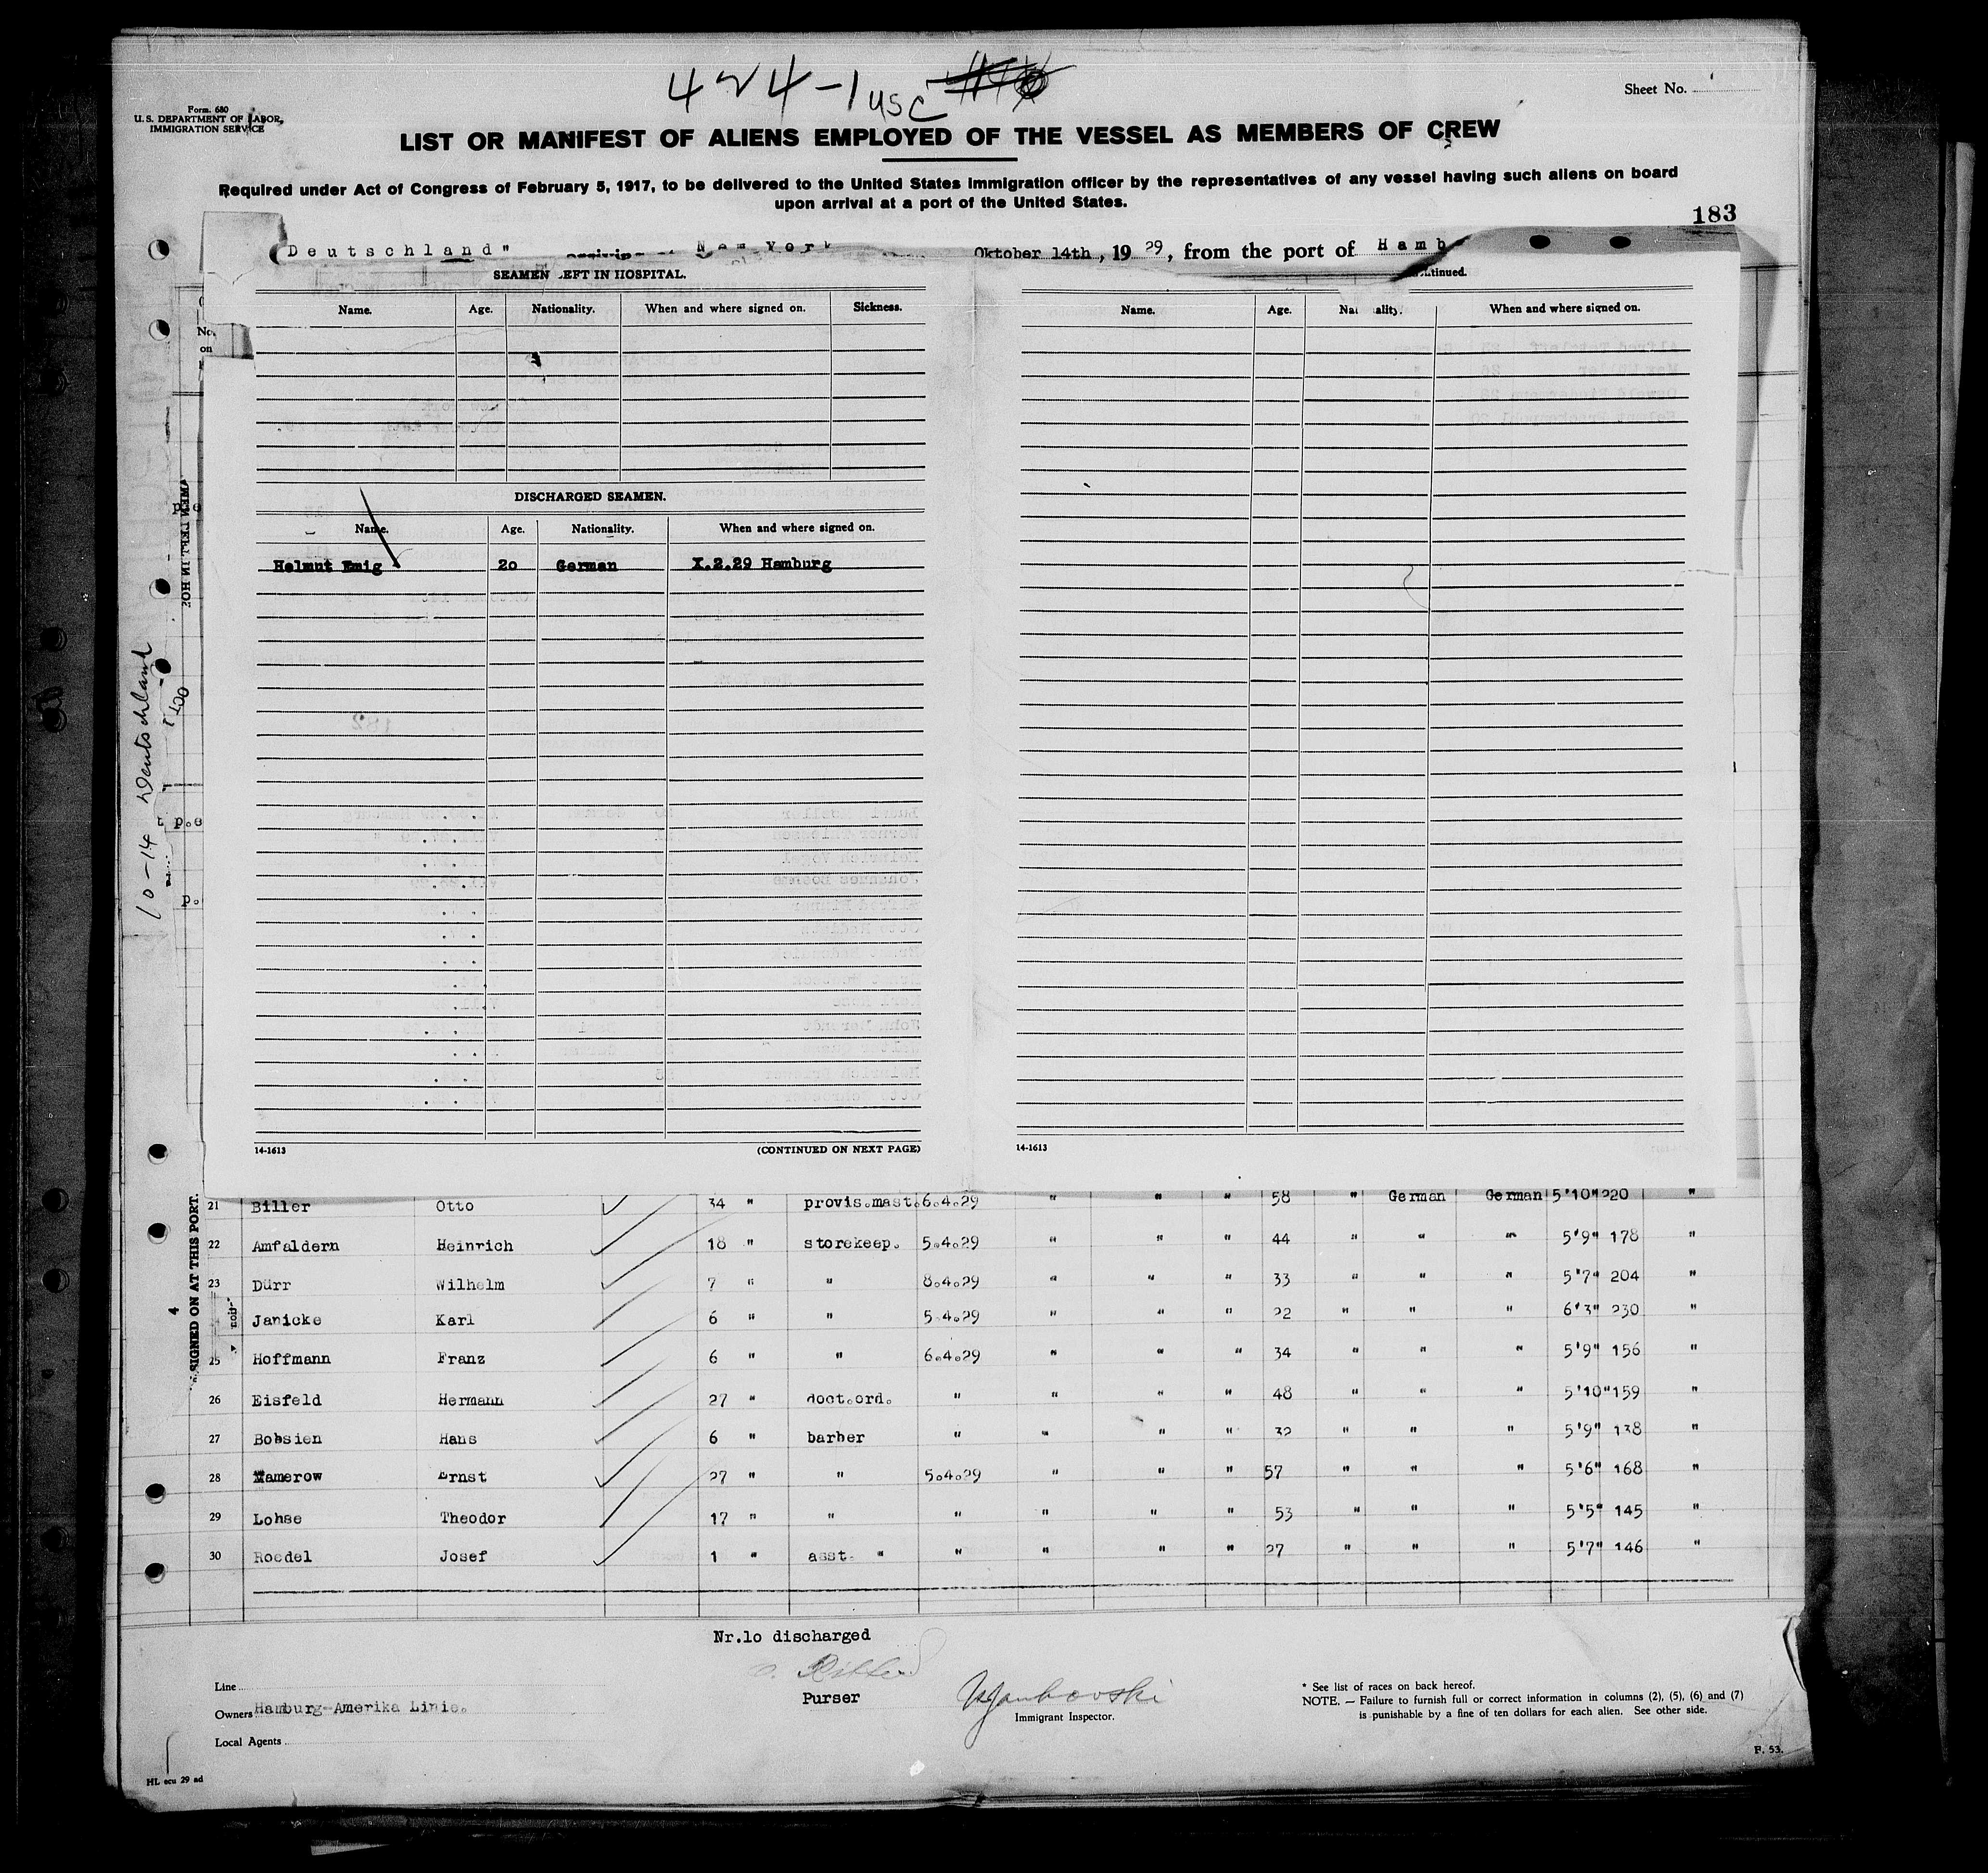 424-1 USC
Sheet No.
Form. 680
U.S. DEPARTMENT OF LABOR,
IMMIGRATION SERVICE
LIST OR MANIFEST OF ALIENS EMPLOYED OF THE VESSEL AS MEMBERS OF CREW
Required under Act of Congress of February 5, 1917, to be delivered to the United States immigration officer by the representatives of any vessel having such aliens on board
upon arrival at a port of the United States.
183
Deutschland" arriving at New York Oktober 14th, 1929, from the port of Hamb
SEAMEN LEFT IN HOSPITAL.
Name. Age. Nationality. When and where signed on. Sickness.
DISCHARGED SEAMEN.
Name. Age. Nationality. When and where signed on.
Helmut Emig 2o German X.2.29 Hamburg
14-1613 (CONTINUED ON NEXT PAGE)
tinued.
Name. Age. Nationality. When and where signed on.
14-1613
10-14 Deutschland
OCT 1
4
SIGNED ON AT THIS PORT.
21 Biller Otto 34 " provis.mast. 6.4.29 " " " 58 " German German 5'10" 220 "
22 Amfaldern Heinrich 18 " storekeep. 5.4.29 " " " 44 " " " 5'9" 178 "
23 Dürr Wilhelm 7 " " 8.4.29 " " " 33 " " " 5'7" 204 "
Janicke Karl 6 " " 5.4.29 " " " 22 " " " 6'3" 230 "
25 Hoffmann Franz 6 " " 6.4.29 " " " 34 " " " 5'9" 156 "
26 Eisfeld Hermann 27 " doct.ord. " " " " 48 " " " 5'10" 159 "
27 Bobsien Hans 6 " barber " " " " 32 " " " 5'9" 138 "
28 Mamerow Ernst 27 " " 5.4.29 " " " 57 " " " 5'6" 168 "
29 Lohse Theodor 17 " " " " " " 53 " " " 5'5" 145 "
30 Roedel Josef 1 " asst. " " " " " 27 " " " 5'7" 146 "
Nr.1o discharged
Purser
Immigrant Inspector.
Line
Owners Hamburg-Amerika Linie.
Local Agents
* See list of races on back hereof.
NOTE. — Failure to furnish full or correct information in columns (2), (5), (6) and (7)
is punishable by a fine of ten dollars for each alien. See other side.
F. 53.
HL ecu 29 ad